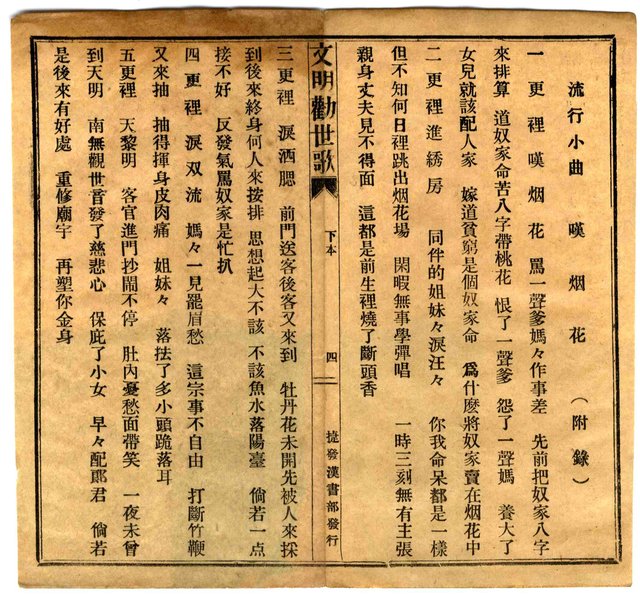 流行小曲　嘆烟花（附錄）
一更裡嘆烟花　罵一聲爹媽々作事差　先前把奴家八字
來排算　道奴家命苦八字帶桃花　恨了一聲爹　怨了一聲媽　養大了
女兒就該配人家　嫁道貧窮是個奴家命　為什麼將奴家賣在烟花中
二更裡進綉房　同伴的姐妹々淚汪々　你我命呆都是一樣
但不知何日裡跳出烟花場　閑暇無事學彈唱　一時三刻無有主張
親身丈夫見不得面　這都是前生裡燒了斷頭香
文明勸世歌　下本　四　捷發漢書部發行
三更裡淚洒腮　前門送客後客又來到　牡丹花未開先被人來採
到後來終身何人來按排　思想起大不該　不該魚水落陽臺　倘若一点
接不好　反發氣罵奴家是忙扒
四更裡淚双流　媽々一見罷眉愁　這宗事不自由　打斷竹鞭
又來抽　抽得揮身皮肉痛　姐妹々　落抾了多小頭跪落耳
五更裡　天黎明　客官進門抄鬧不停　肚內憂愁面帶笑　一夜未曾
到天明　南無觀世音發了慈悲心　保庇了小女　早々配郎君　倘若
是後來有好處　重修廟宇　再塑你金身